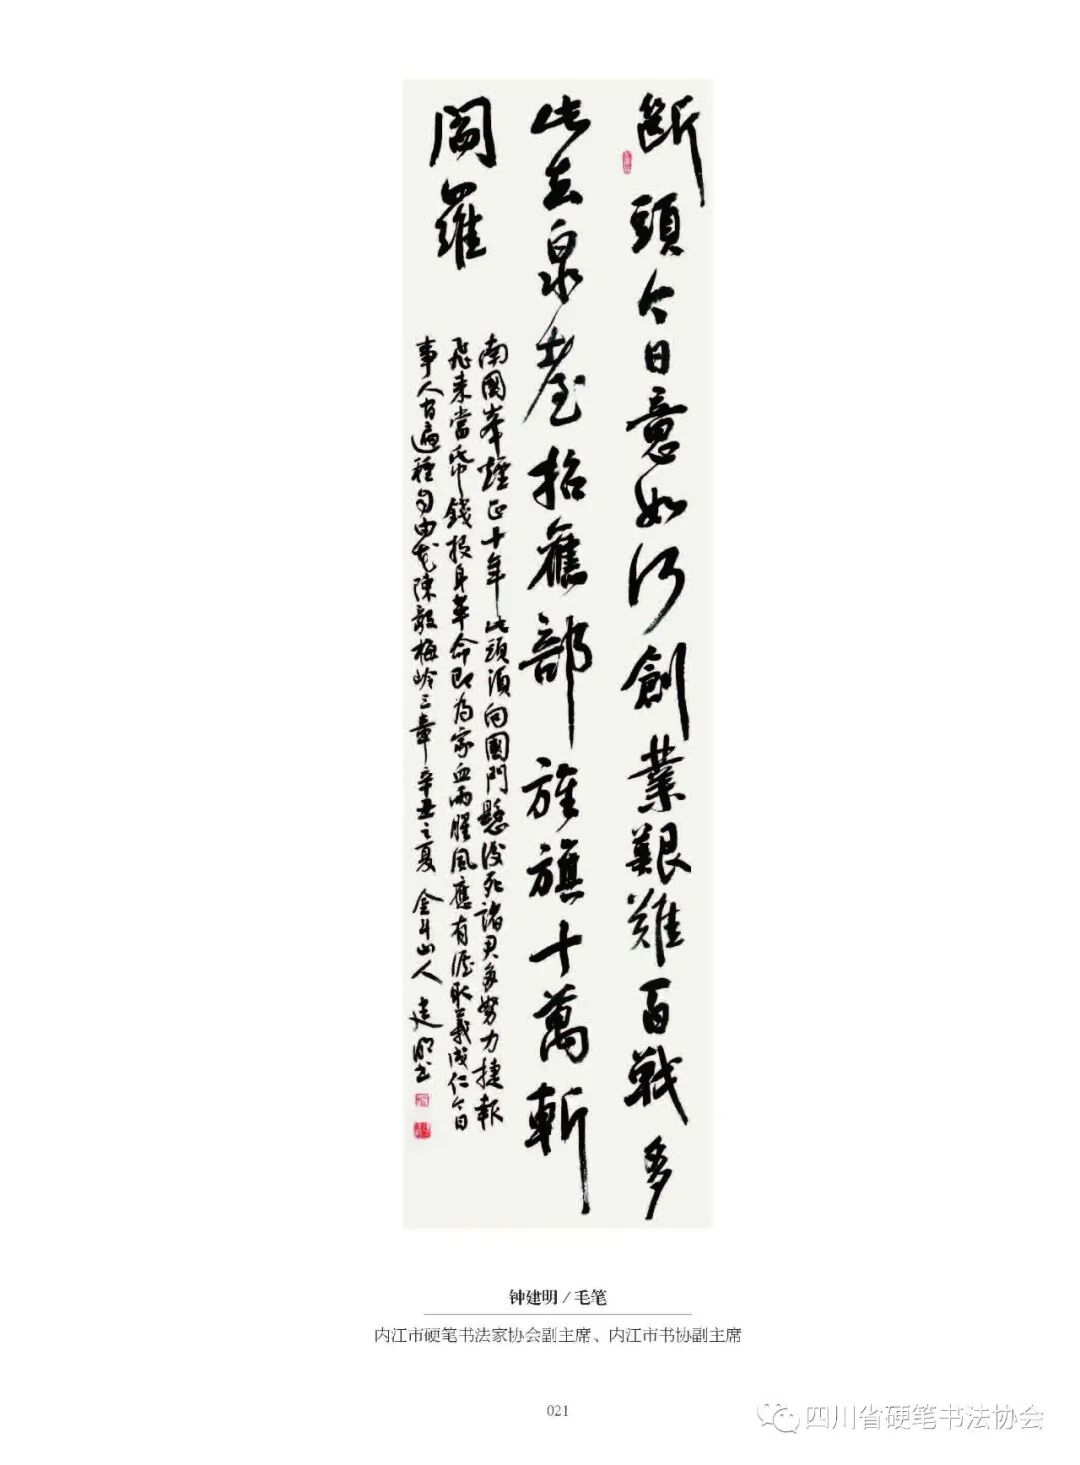 斷頭今日意如何創業艱難百戰多
此去泉臺招舊部旌旗十萬斬
閻羅
南國峯煙正十年此頭須向國門懸後死諸君多努力捷報
飛來當帋錢投身革命即為家血雨腥風應有涯取義成仁今日
事人間遍種自由花陳毅梅嶺三章辛丑之夏 金斗山人 建明書
钟建明 / 毛笔
内江市硬笔书法家协会副主席、内江市书协副主席
021
四川省硬笔书法协会